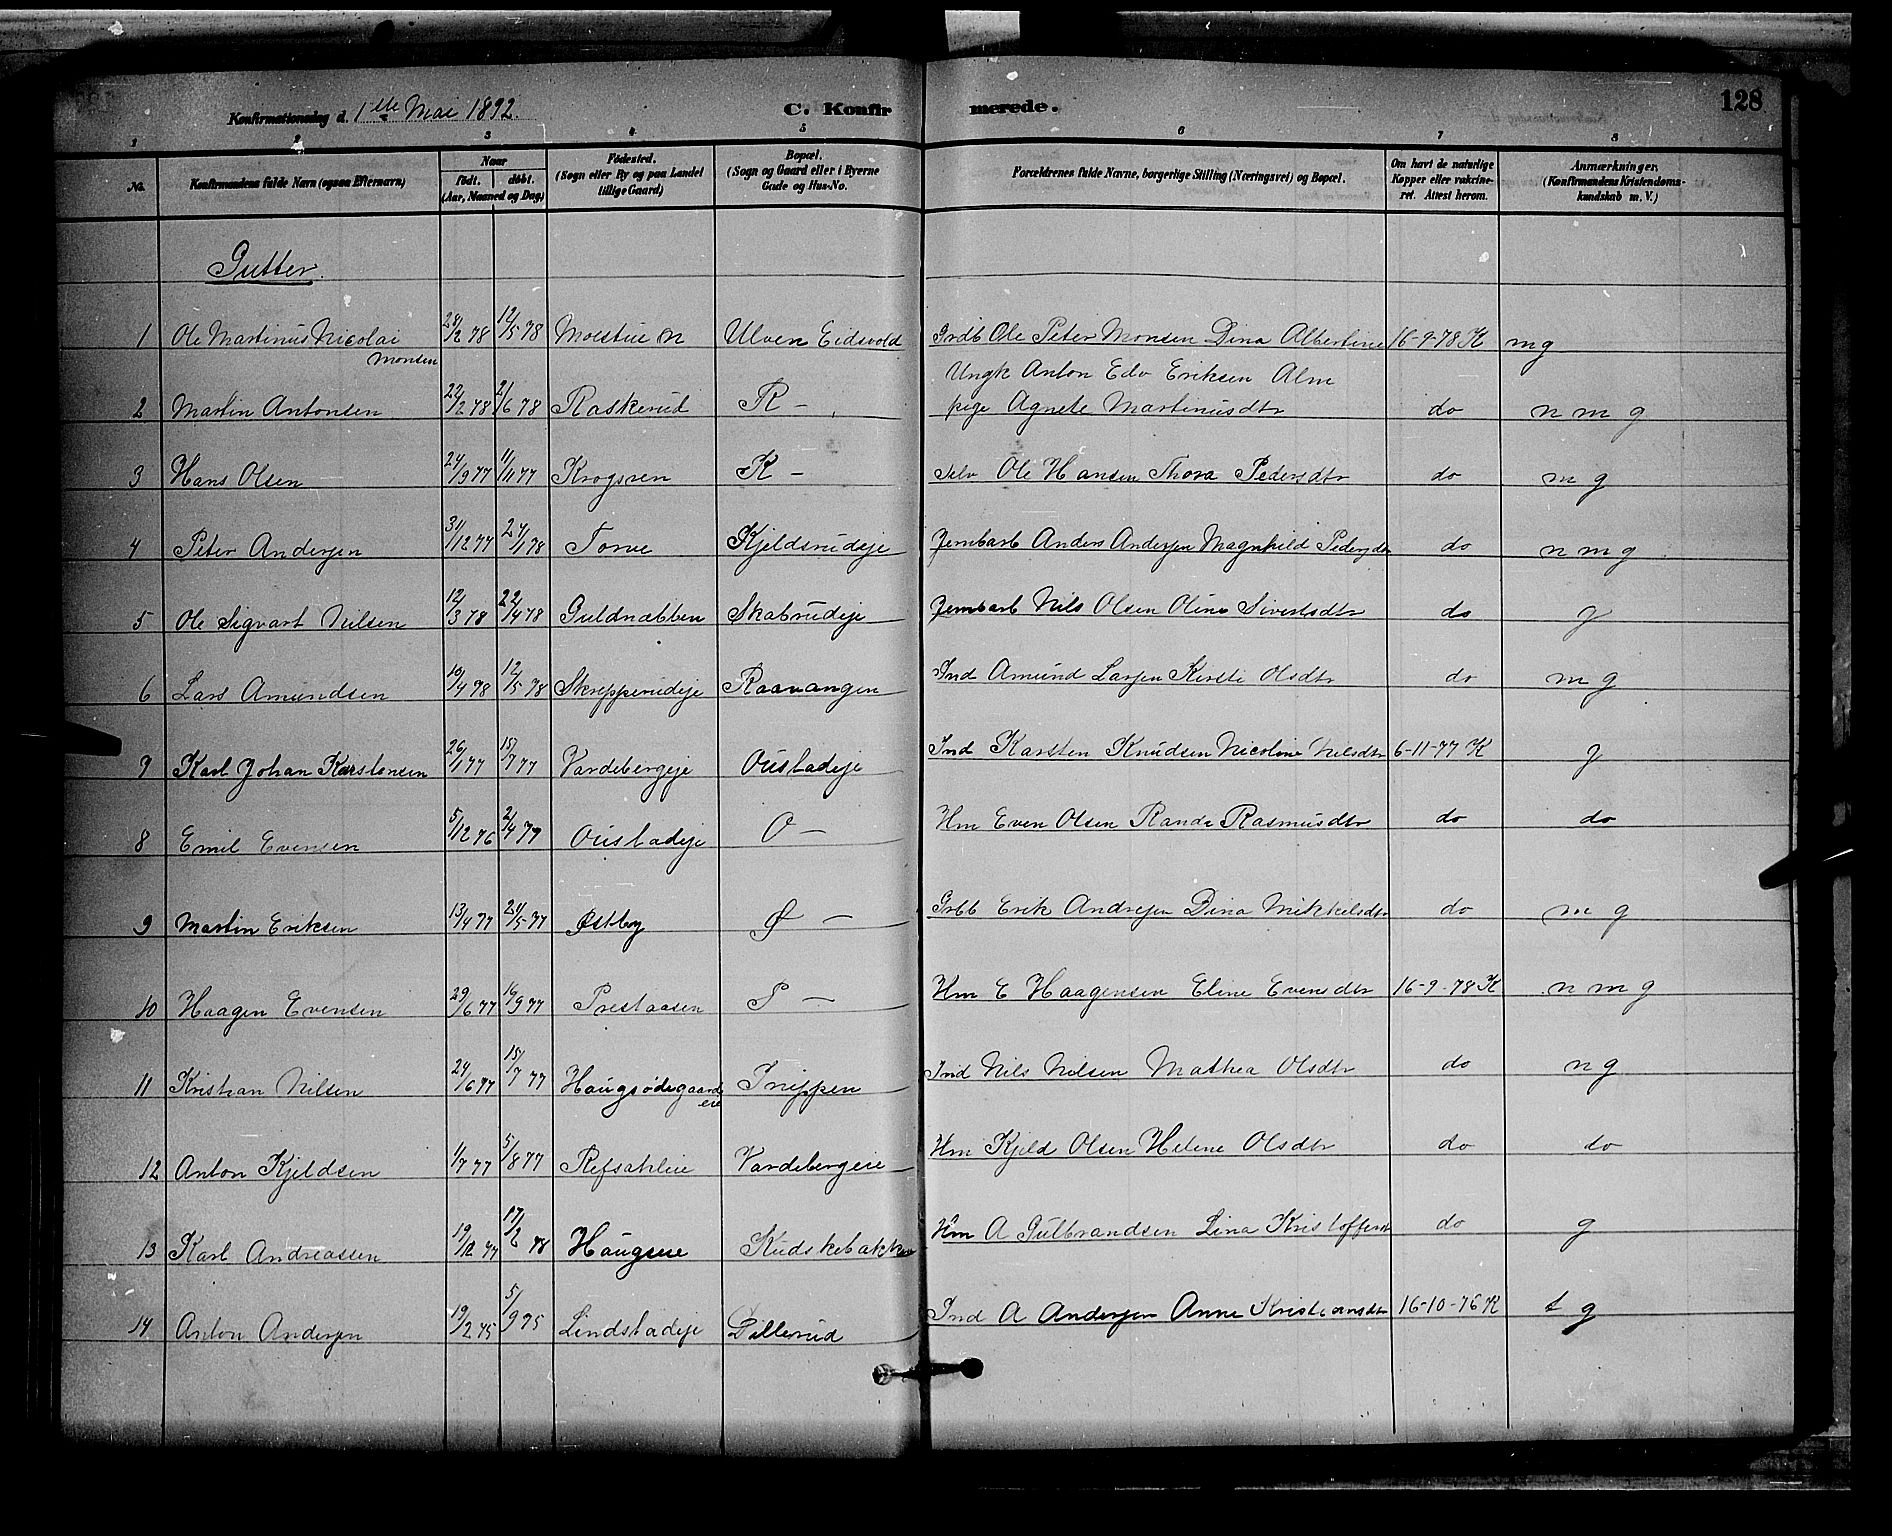 Konfirmationsdag d. 1ste Mai 1892.
C. Konfir merede.
128
1 2 3 4 5 6 7 8
No.
Konfirmandens fulde Navn (ogsaa Efternavn)
Naar
født. døbt.
(Aar, Maaned og Dag)
Fødested.
(Sogn eller By og paa Landet
tillige Gaard)
Bopæl.
(Sogn og Gaard eller i Byerne
Gade og Hus-No.
Forældrenes fulde Navne, borgerlige Stilling (Næringsvei) og Bopæl.
Om havt de naturlige
Kopper eller vakcine-
ret. Attest herom.
Anmærkninger.
(Konfirmandens Kristendoms-
kundskab m. V.)
Gutter.
1 Ole Martinus Nicolai 28/2 78 12/5 78 Moestue N Ulven Eidsvold Grdb Ole Peter Monsen Dina Albertine 16-9-78 K m g
Monsen
Ungk Anton Edv Eriksen Alm
2 Martin Antonsen 22/2 78 2/6 78 Raskerud R - pige Agnete Martinusdtr do n m g
3 Hans Olsen 24/9 77 11/11 77 Krogsven K - Selv Ole Hansen Thora Pedersdtr do m g
4 Peter Andersen 31/12 77 27/1 78 Torve Kjeldsrudeje Jernbarb Anders Andersen Magnhild Pedersdtr do n m g
5 Ole Sigvart Nilsen 12/3 78 22/4 78 Guldnæbben Skabrudeje Jernbarb Nils Olsen Oline Sivertsdtr do g
6 Lars Amundsen 10/4 78 12/5 78 Skrepperudeje Raavangen Ind Amund Larsen Kirsti Olsdtr do m g
7 Karl Johan Karstensen 26/1 77 15/7 77 Vardebergeje Oustadeje Ind Karsten Knudsen Nicoline Nilsdtr 6-11-77 K g
8 Emil Evensen 5/12 76 2/4 77 Oustadeje O - Hm Even Olsen Randi Rasmusdtr do do
9 Martin Eriksen 13/4 77 21/5 77 Østby Ø - Grbb Erik Andresen Dina Mikkelsdtr do m g
10 Haagen Evensen 29/6 77 16/9 77 Prestaasen P - Hm E Haagensen Eline Evensdtr 16-9-78 K n m g
11 Kristian Nilsen 24/6 77 15/7 77 Haugsødegaard Snippen Ind Nils Nilsen Mathea Olsdtr do n g
eie
12 Anton Kjeldsen 1/7 77 5/8 77 Refsahleie Vardebergeie Hm Kjeld Olsen Helene Olsdtr do do
13 Karl Andreassen 19/12 77 17/2 78 Haugeie Kudskebakken Hm A Gulbrandsen Lina Kristoffersd do g
14 Anton Andersen 19/2 75 5/9 75 Lindstadeje Dillerud Ind A Andersen Anne Kristiansdtr 16-10-76 K t g